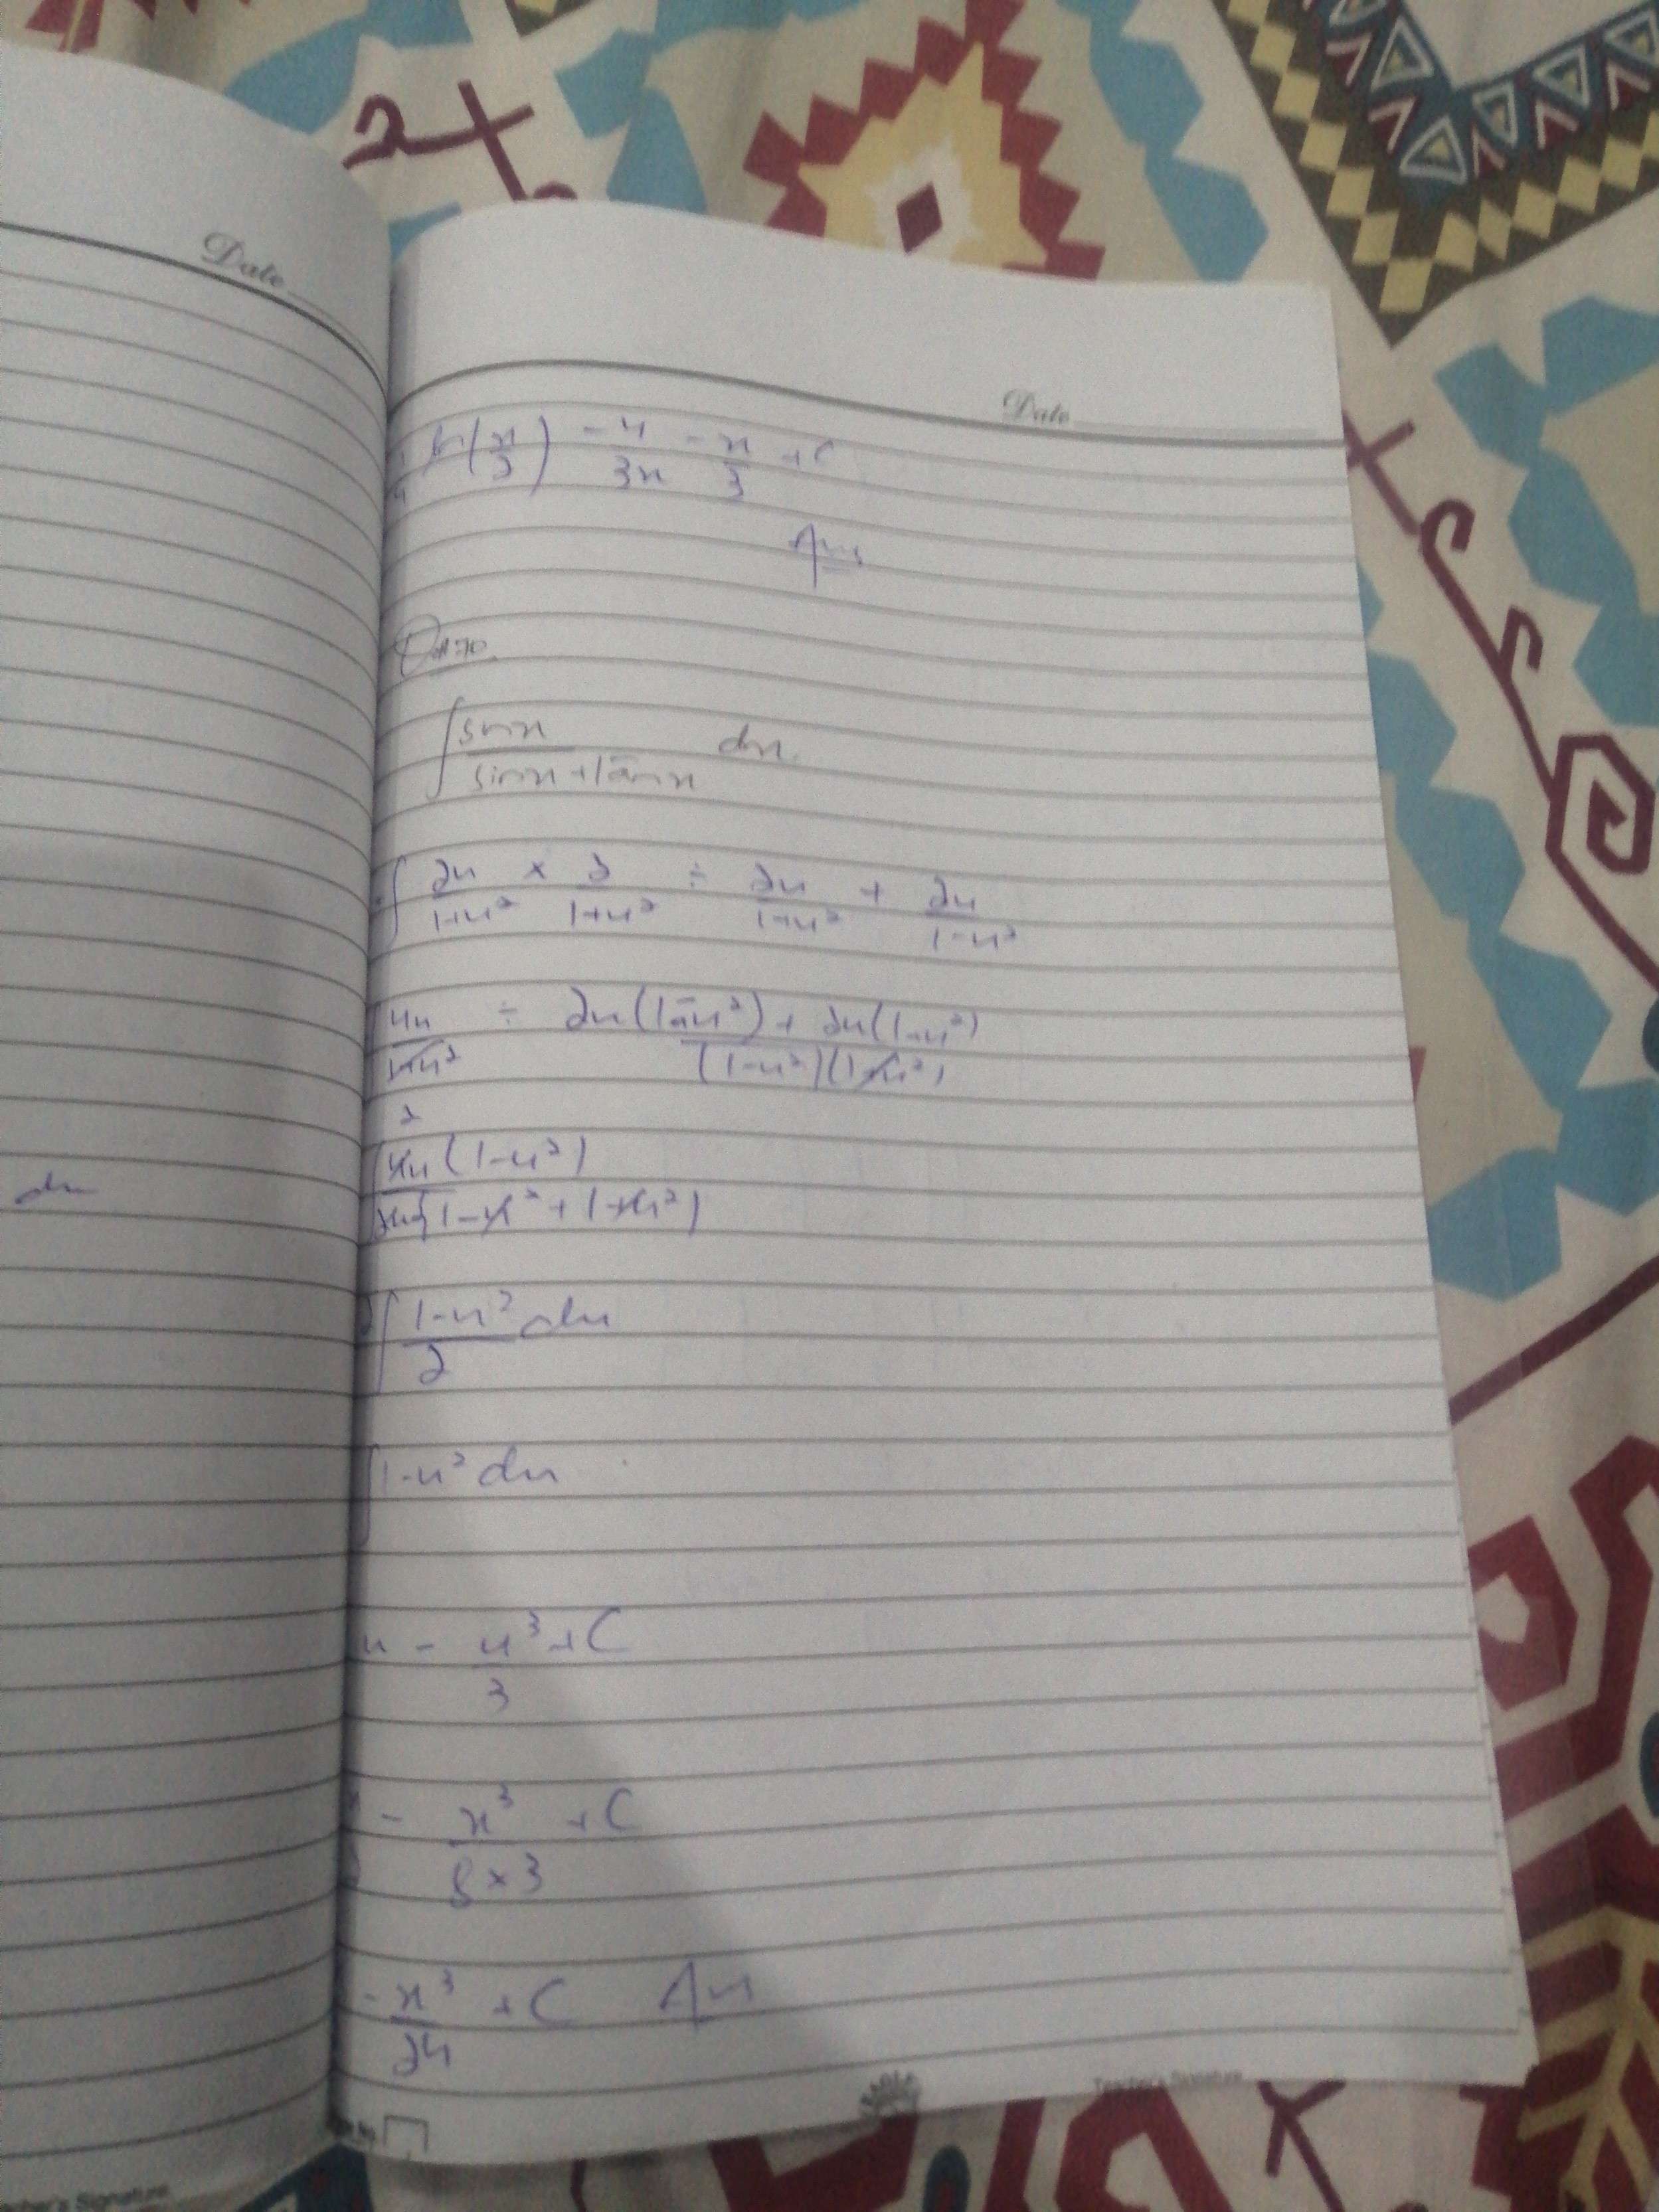 Date
Date
1/4 ln(x/2) - 4/3x - x/3 + C
Ans
∫ sinx/(sinx+tanx) dx.
∫ 2u/(1+u²) × 2/(1+u²) ÷ 2u/(1+u²) + 2u/(1-u²)
∫ 4u/(1+u²) ÷ (2u(1-u²) + 2u(1+u²))/((1-u²)(1+u²))
2
∫ 4u(1-u²)/(2u(1-u²+1+u²))
du
∫ (1-u²)/2 du
∫ 1-u² du
u - u³/3 + C
- x³/(8×3) + C
- x³/24 + C Ans
Teacher's Signature
Teacher's Signature